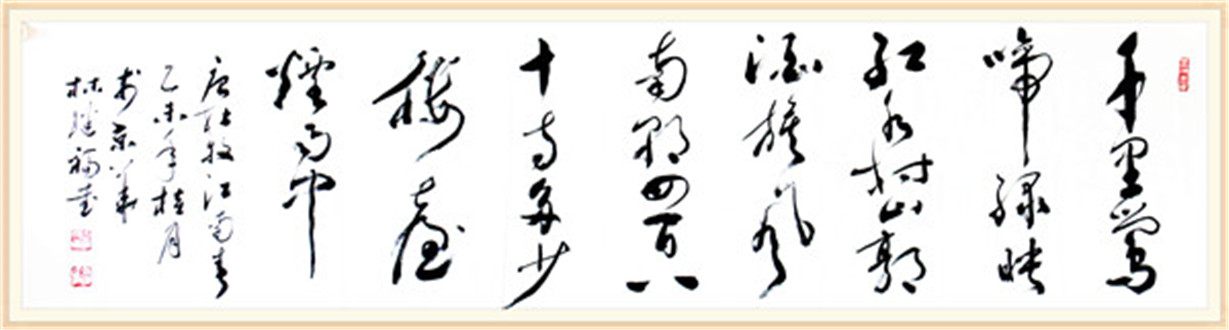 千里鶯
啼绿映
红水村山郭
酒旗风
南朝四百八
十寺多少
楼臺
煙雨中
唐杜牧江南春
乙未年桂月
於京華
林福书